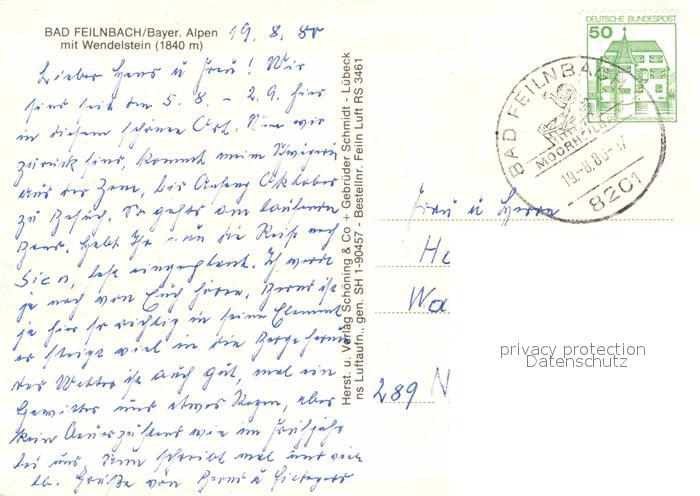 BAD FEILNBACH/Bayer. Alpen
mit Wendelstein (1840 m)
19. 8. 80
Lieber Hans u Frau! Wir
sind seit dem 5. 8. – 2. 9. hier
in diesem schönen Ort. Wenn wir
zurück sind, kommt meine
aus der Zone, bis Anfang Oktober
zu Besuch. So gehts am laufenden
Band. Habt Ihr nun die Reise nach
fest eingeplant. Ich werde
ja noch von Euch hören, ist
ja hier so richtig in seine Element
er steigt viel in die Berge herum
das Wetter ist auch gut, mal ein
Gewitter und etwas Regen, aber
kein wie im Frühjahr
bei uns. Nun schreibt mal und
lb. Grüße von u
Herst. u. Verlag Schöning & Co + Gebrüder Schmidt - Lübeck
ns Luftaufn., gen. SH 1-90457 - Bestellnr. Feiln Luft RS 3461
DEUTSCHE BUNDESPOST
50
BAD FEILNBACH
MOORHEILBAD
19.-8.80-17
8201
Frau u Herrn
He
Wa
289 N
privacy protection
Datenschutz